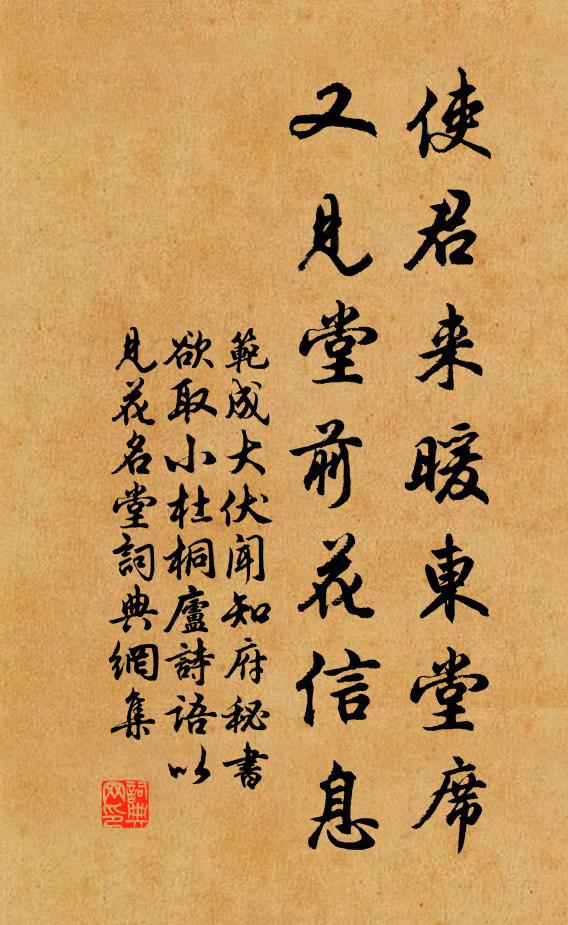 使君来暖東堂席
又見堂前花信息
範成大伏闻知府秘書
欲取小杜桐廬詩語以
見花名堂詞典網集
詞典
网印